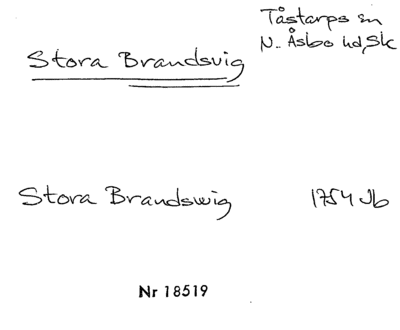 Tåstarps sn
Stora Brandsvig
N. Åsbo hd, Sk
Stora Brandswig 1754 Jb
Nr 18519